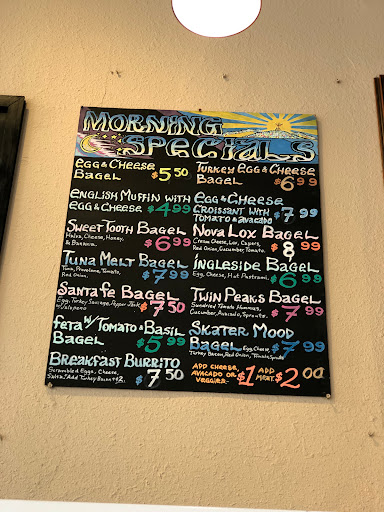 MORNING
SPECIALS
EGG & CHEESE
BAGEL $5.50
TURKEY EGG & CHEESE
BAGEL $6.99
ENGLISH MUFFIN WITH
EGG & CHEESE $4.99
EGG & CHEESE
CROISSANT WITH
TOMATO & AVOCADO $7.99
SWEET TOOTH BAGEL
Cheese, Honey,
& Banana. $6.99
NOVA LOX BAGEL
Cream Cheese, Lox, Capers,
Red Onion, Cucumber, Tomato. $8.99
TUNA MELT BAGEL
Tuna, Provolone, Tomato,
Red Onion. $7.99
INGLESIDE BAGEL
Egg, Cheese, Hot Pastrami. $6.99
SANTA FE BAGEL
Egg, Turkey Sausage, Pepper Jack
w/ Jalapeno $7.50
TWIN PEAKS BAGEL
Sundried Tomato Hummus,
Cucumber, Avocado, Sprouts. $7.99
feta w/ TOMATO & BASIL
BAGEL $5.99
SKATER MOOD
BAGEL Egg, Cheese,
Turkey Bacon, Red Onion, Tomato, Sprouts $7.99
BREAKFAST BURRITO
Scrambled Eggs, Cheese,
Salsa. Add Turkey Bacon +$2. $7.50
ADD CHEESE,
AVOCADO OR
VEGGIES - $1
ADD
MEAT - $2.00